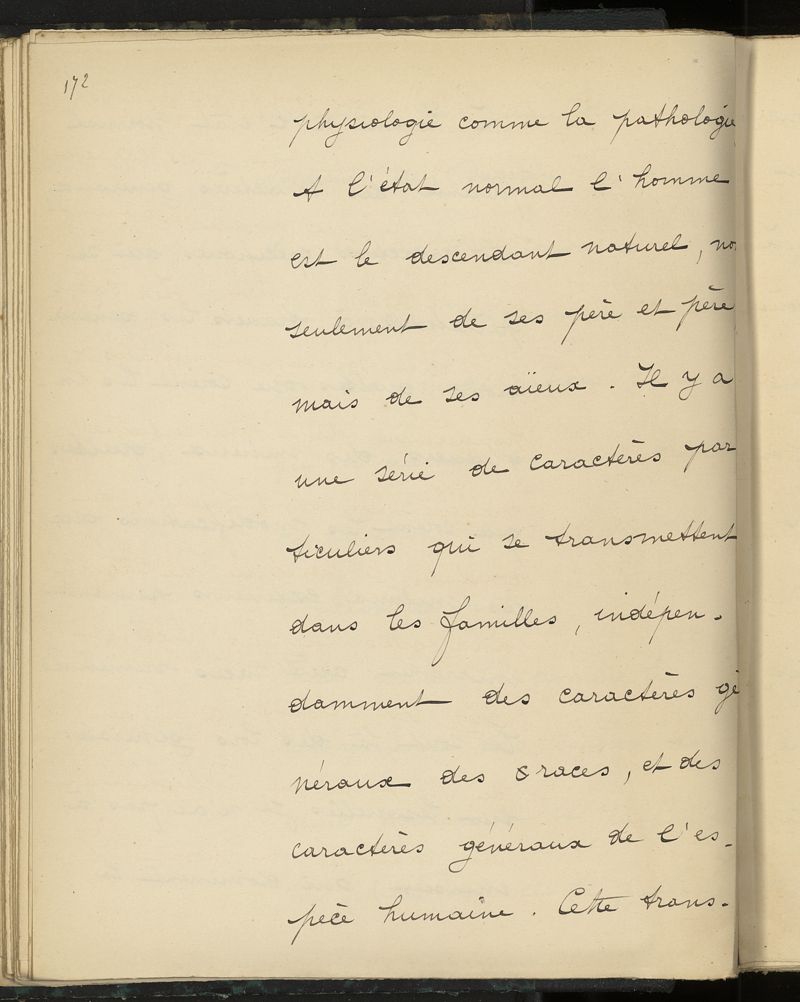 172
physiologie comme la pathologie
A l'état normal l'homme
est le descendant naturel, non
seulement de ses père et père
mais de ses aïeux. Il y a
une série de caractères par
ticuliers qui se transmettent
dans les familles, indépen-
damment des caractères gé
néraux des races, et des
caractères généraux de l'es-
pèce humaine. Cette trans-